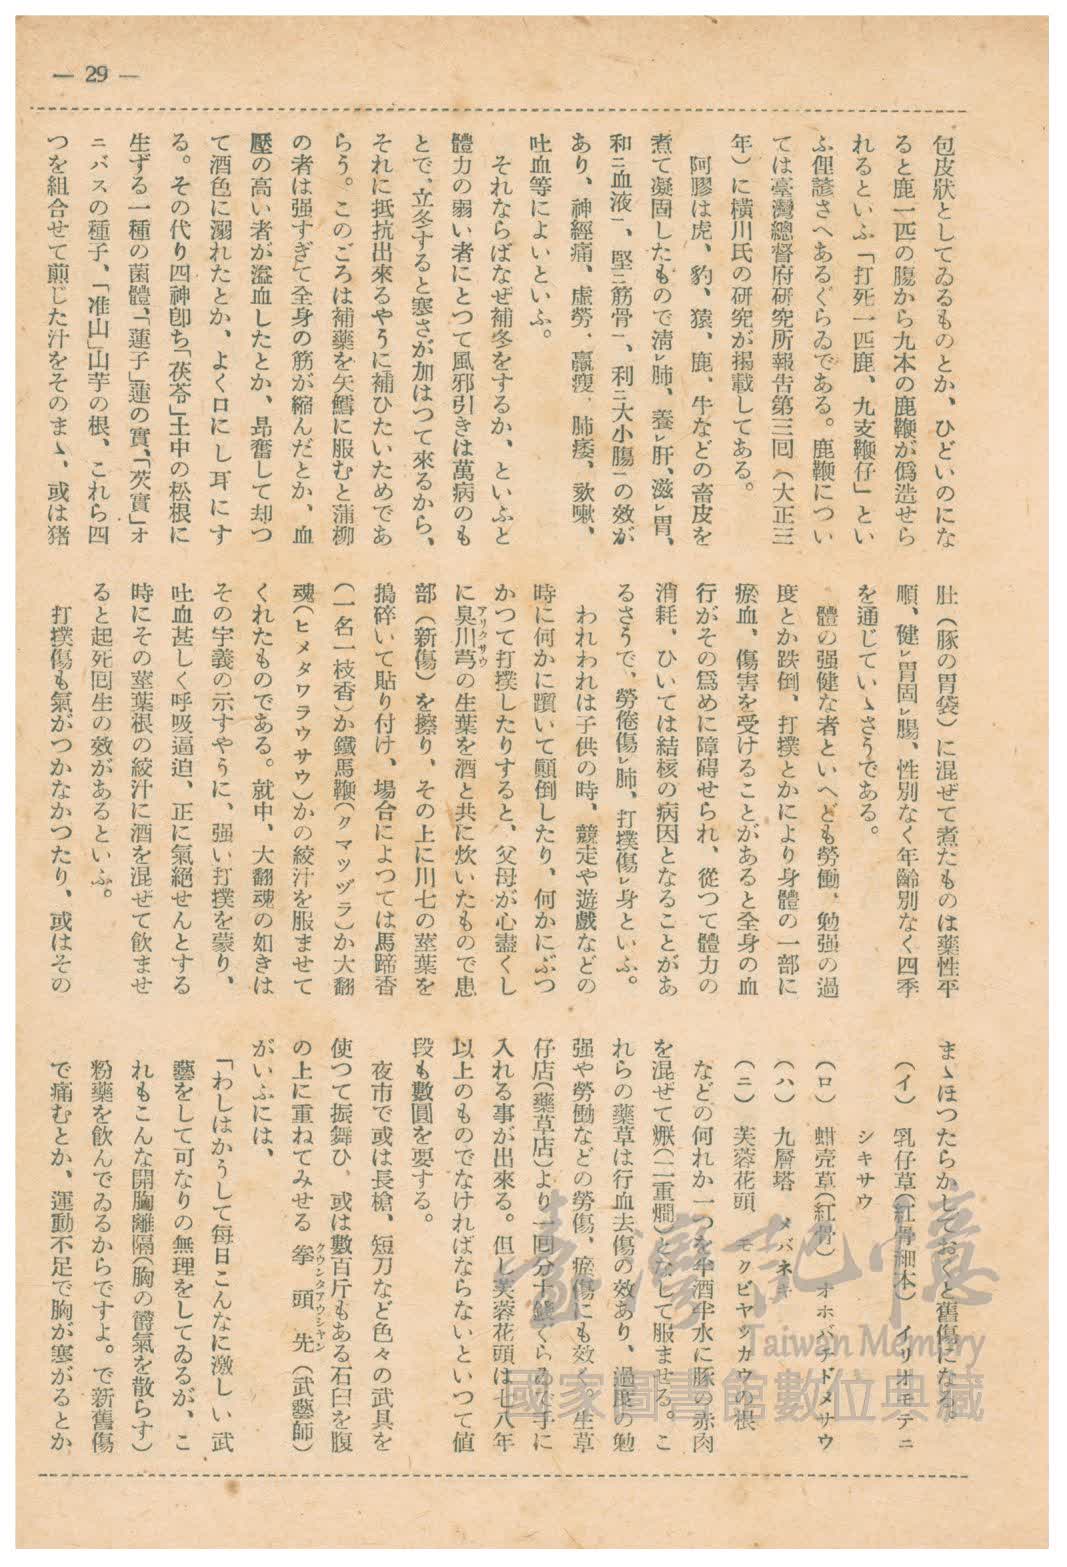 — 29 —
包皮狀としてゐるものとか、ひどいのにな
ると鹿一匹の腸から九本の鹿鞭が僞造せら
れるといふ「打死一匹鹿、九支鞭仔」とい
ふ俚諺さへあるぐらゐである。鹿鞭につい
ては臺灣總督府研究所報告第三囘（大正三
年）に橫川氏の研究が揭載してある。
阿膠は虎、豹、猿、鹿、牛などの畜皮を
煮て凝固したもので淸レ肺、養レ肝、滋レ胃、
和ニ血液一、堅ニ筋骨一、利ニ大小腸一の效が
あり、神經痛、虛勞、羸瘦、肺痿、欬嗽、
吐血等によいといふ。
それならばなぜ補冬をするか、といふと
體力の弱い者にとつて風邪引きは萬病のも
とで、立冬すると寒さが加はつて來るから、
それに抵抗出來るやうに補ひたいためであ
らう。このごろは補藥を矢鱈に服むと蒲柳
の者は强すぎて全身の筋が縮んだとか、血
壓の高い者が溢血したとか、昂奮して却つ
て酒色に溺れたとか、よく口にし耳にす
る。その代り四神卽ち「茯苓」土中の松根に
生ずる一種の菌體、「蓮子」蓮の實、「芡實」オ
ニバスの種子、「准山」山芋の根、これら四
つを組合せて煎じた汁をそのまゝ、或は猪
肚（豚の胃袋）に混ぜて煮たものは藥性平
順、健レ胃固レ腸、性別なく年齡別なく四季
を通じていゝさうである。
體の强健な者といへども勞働、勉强の過
度とか跌倒、打撲とかにより身體の一部に
瘀血、傷害を受けることがあると全身の血
行がその爲めに障碍せられ、從つて體力の
消耗、ひいては結核の病因となることがあ
るさうで、勞倦傷レ肺、打撲傷レ身といふ。
われわれは子供の時、競走や遊戲などの
時に何かに躓いて顚倒したり、何かにぶつ
かつて打撲したりすると、父母が心盡くし
に臭川芎アリクサウの生葉を酒と共に炊いたもので患
部（新傷）を擦り、その上に川七の莖葉を
搗碎いて貼り付け、場合によつては馬蹄香
（一名一枝香）か鐵馬鞭（クマツヅラ）か大翻
魂（ヒメタワラウサウ）かの絞汁を服ませて
くれたものである。就中、大翻魂の如きは
その字義の示すやうに、强い打撲を蒙り、
吐血甚しく呼吸逼迫、正に氣絕せんとする
時にその莖葉根の絞汁に酒を混ぜて飮ませ
ると起死囘生の效があるといふ。
打撲傷も氣がつかなかつたり、或はその
まゝほつたらかしておくと舊傷になる。
（イ）　乳仔草（紅骨細本）　イリオモテニ
シキサウ
（ロ）　蚶壳草（紅骨）　オホバチドメサウ
（ハ）　九層塔　メバネキ
（ニ）　芙蓉花頭　モクビヤツカウの根
などの何れか一つを半酒半水に豚の赤肉
を混ぜて𤉙（二重燗）となして服ませる。こ
れらの藥草は行血去傷の效あり、過度の勉
强や勞働などの勞傷、瘀傷にも效く。生草
仔店（藥草店）より一囘分十錢くらゐで手に
入れる事が出來る。但し芙蓉花頭は七八年
以上のものでなければならないといつて値
段も數圓を要する。
夜市で或は長槍、短刀など色々の武具を
使つて振舞ひ、或は數百斤もある石臼を腹
の上に重ねてみせる拳頭先クウンタアウシヤン（武藝師）
がいふには、
「わしはかうして每日こんなに激しい武
藝をして可なりの無理をしてゐるが、こ
れもこんな開胸離隔（胸の欝氣を散らす）
粉藥を飮んでゐるからですよ。で新舊傷
で痛むとか、運動不足で胸が塞がるとか
臺灣記憶
Taiwan Memory
國家圖書館數位典藏